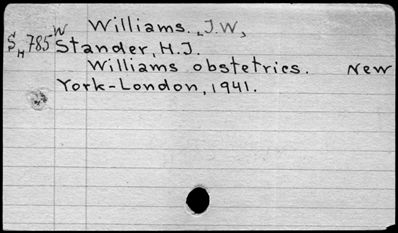 W Williams. J.W,
SH785 Stander, H.J.
Williams obstetrics. New
York-London, 1941.